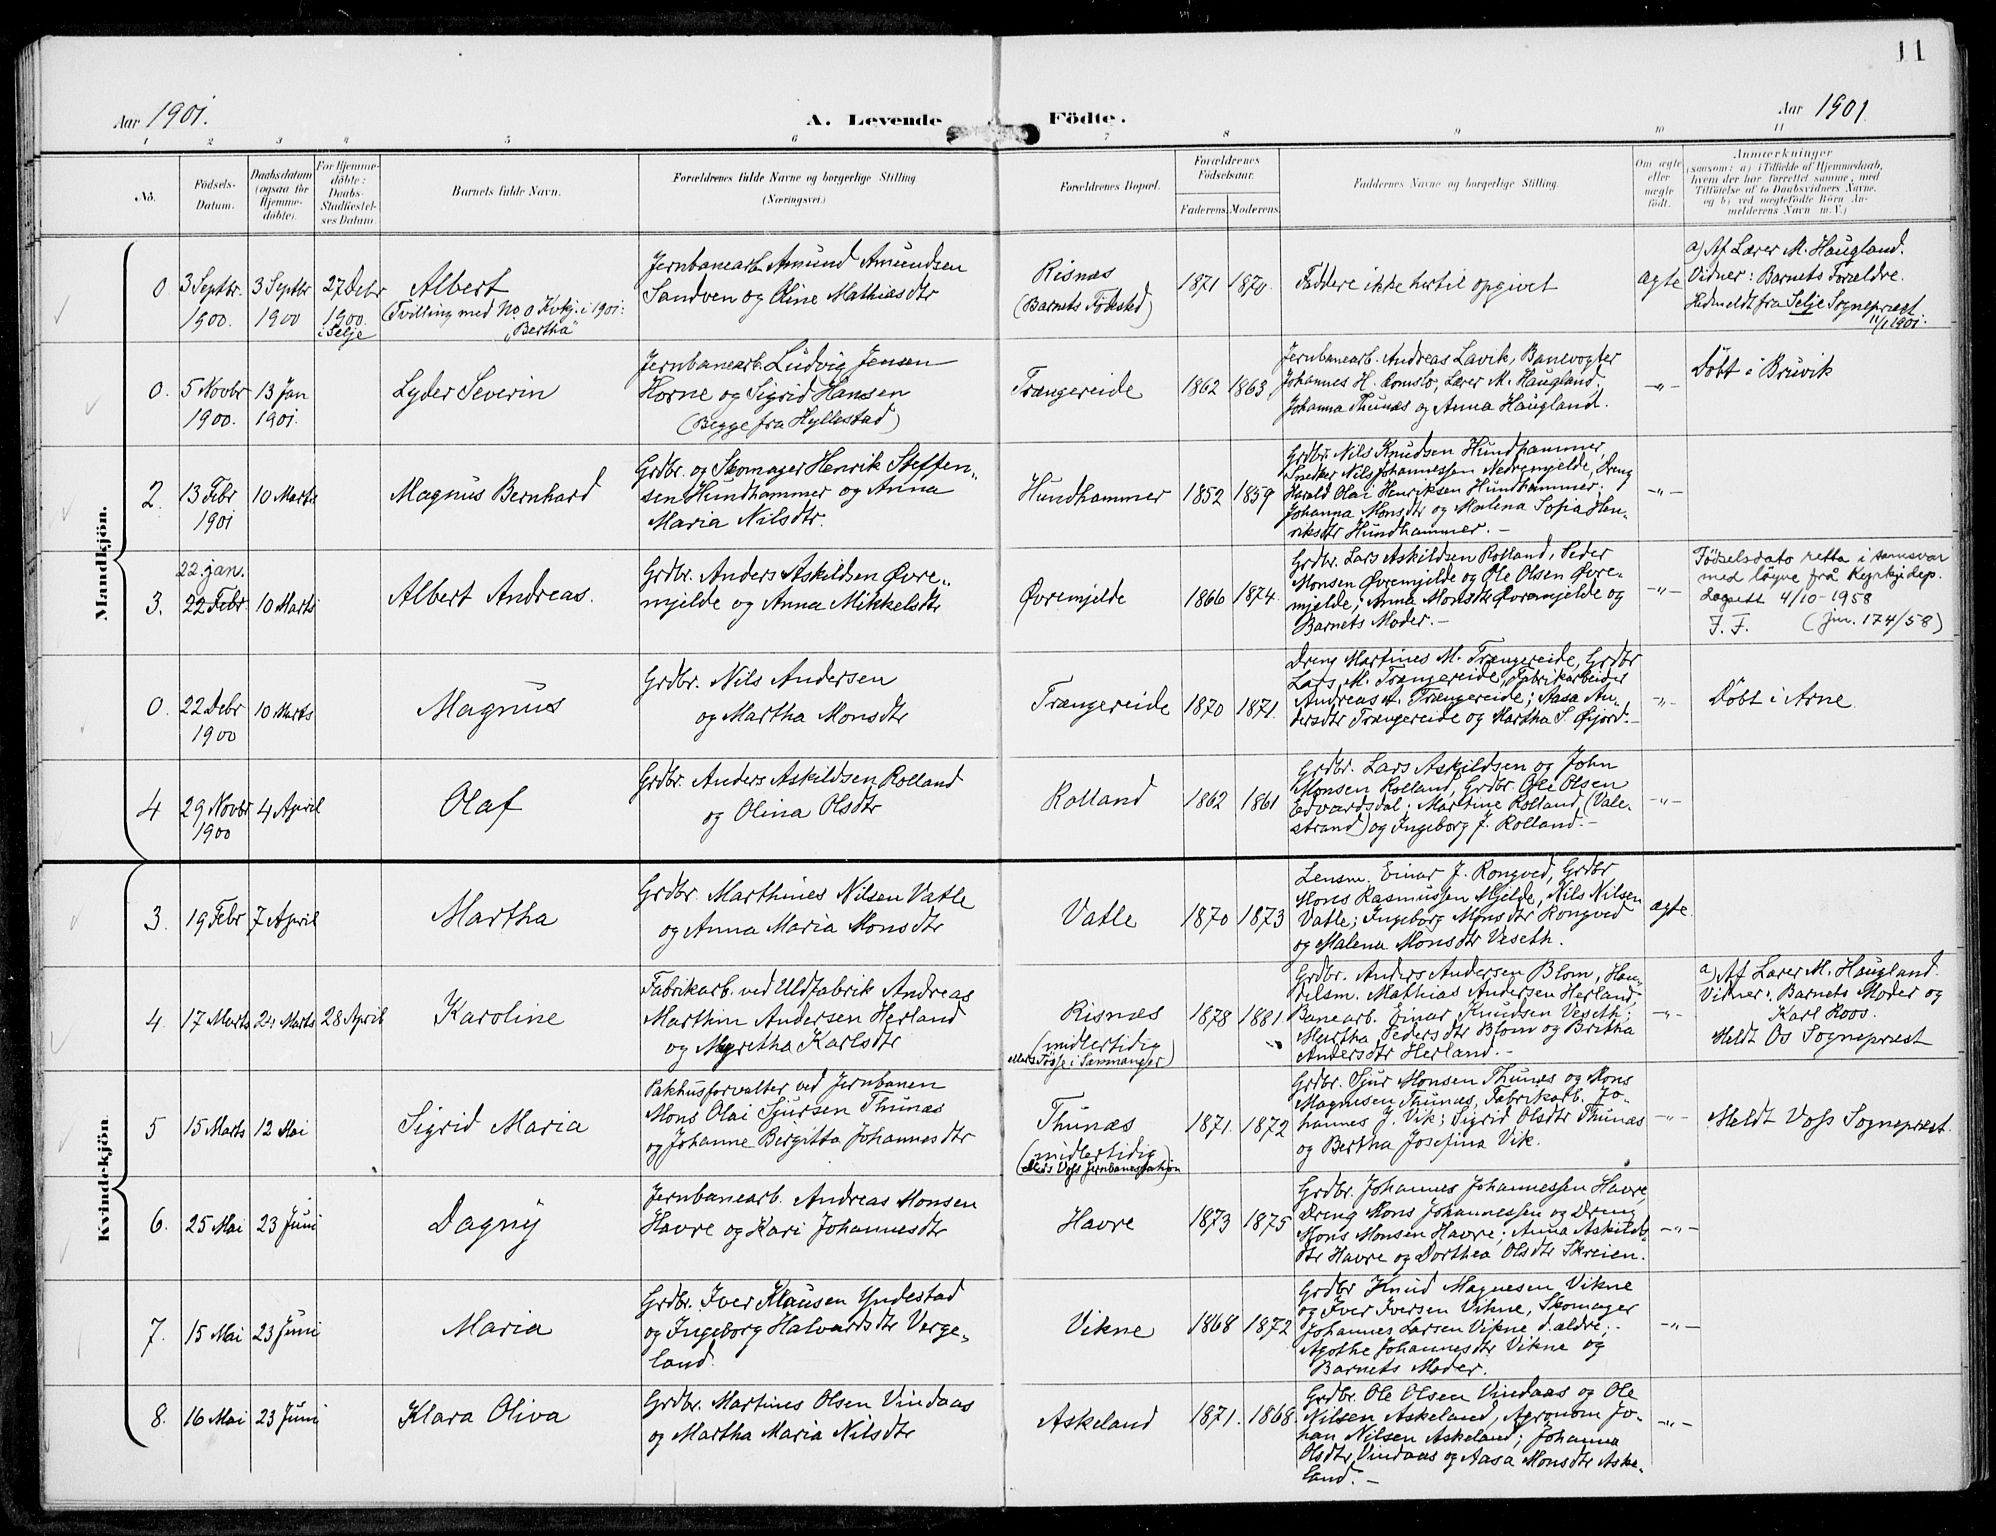 11
Aar 1901.
A. Levende Födte.
Aar 1901.
1 2 3 4 5 6 7 8 9 10 11
No.
Födsels-
Datum.
Daabsdatum
(ogsaa for
Hjemme-
döbte).
For Hjemme-
döbte:
Daabs-
Stadfæstel-
ses Datum.
Barnets fulde Navn.
Forældrenes fulde Navne og borgerlige Stilling
(Næringsvei.)
Forældrenes Bopæl.
Forældrenes
Födselsaar.
Faderens. Moderens.
Faddernes Navne og borgerlige Stilling.
Om ægte
eller
uægte
födt.
Anmærkninger
(saasom: a) i Tilfælde af Hjemmedaab,
hvem der har forrettet samme, med
Tilföielse af to Daabsvidners Navne,
og b) ved uægtefödte Börn An-
melderens Navn m. V.)
Mandkjön.
0
3 Septbr.
1900.
3 Septbr
1900
27 Debr
1900.
i Selje
Albert
(Tvilling med No 0 Kvkj. i 1901:
"Bertha"
Jernbanearb. Amund Amundsen
Sandven og Oline Mathiasdtr
Risnæs
(Barnets Fødested)
1871
1870.
Faddere ikke hertil opgivet
ægte
a) Af Lærer M. Haugland.
Vidner: Barnets Forældre.
Hidmeldt fra Selje Sogneprest
11/1 1901.
0.
5 Novbr
1900.
13 Jan
1901.
Lyder Severin
Jernbanearb. Ludvig Jensen
Horne og Sigrid Hansen
(Begge fra Hyllestad)
Trængereide
1862
1863
Jernbanearb. Andreas Lavik, Banevogter
Johannes H. Romslo, Lærer M. Haugland.
Johanna Thunæs og Anna Haugland.
-"-
Døbt i Bruvik
2.
13 Febr
1901
10 Marts
Magnus Bernhard
Grdbr. og Skomager Henrik Steffen-
sen Hundhammer og Anna
Maria Nilsdtr.
Hundhammer
1852
1859
Grdbr. Nils Knudsen Hundhammer,
Snedker Nils Johannessen Nedremjelde, Dreng
Harald Olai Henriksen Hundhammer;
Johanna Monsdtr og Malena Sofia Hen-
riksdtr Hundhammer. -
-"-
3.
22. jan.
22 Febr
10 Marts
Albert Andreas.
Grdbr. Anders Askildsen Øvre-
mjelde og Anna Mikkelsdtr
Øvremjelde
1866
1874.
Grdbr. Lars Askildsen Rolland, Peder
Monsen Øvremjelde og Ole Olsen Øvre-
mjelde; Anna Monsdtr Øvremjelde og
Barnets Moder. -
-"-
Fødselsdato retta i samsvar
med løyve frå Kyrkjedep.
dagsett 4/10-1958
J. F. (jnr. 174/58)
0.
22 Debr
1900
10 Marts
Magnus
Grdbr. Nils Andersen
og Martha Monsdtr
Trængereide
1870
1871.
Dreng Martines M. Trængereide, Grdbr
Lars M. Trængereide, Fabrikarbeider
Andreas A. Trængereide; Aasa An-
dersdtr Trængereide og Martha S. Øfjord. -
-"-
Døbt i Arne
4
29 Novbr
1900
4 April
Olaf
Grdbr. Anders Askildsen Rolland
og Olina Olsdtr
Rolland
1862
1861
Grdbr. Lars Askildsen og John
Monsen Rolland, Grdbr. Ole Olsen
Edvardsdal; Martine Rolland (Vale-
strand) og Ingeborg J. Rolland. -
-"-
Kvindekjön
3.
19 Febr
7 April
Martha
Grdbr. Marthines Nilsen Vatle
og Anna Maria Monsdtr
Vatle
1870
1873
Lensm. Einar J. Rongved, Grdbr
Mons Rasmussen Mjelde, Nils Nilsen
Vatle; Ingeborg Monsdtr Rongved
og Malena Monsdtr Veseth.
ægte.
4.
17 Marts
24 Marts
28 April
Karoline
Fabrikarb. ved Uldfabrik Andreas
Marthin Andersen Herland
og Myretha Karlsdtr
Risnæs
(midlertidig
ellers Tøsse i Sammanger)
1878
1881.
Grdbr. Anders Andersen Blom, Han-
delsm. Mathias Andersen Herland,
Banearb. Einar Knudsen Veseth;
Martha Pedersdtr Blom og Britha
Andersdtr Herland. -
-"-
a) Af Lærer M. Haugland.
Vidner: Barnets Moder og
Karl Roos.
Meldt Os Sogneprest
5
15 Marts
12 Mai
Sigrid Maria
Pakhusforvalter ved Jernbanen
Mons Olai Sjursen Thunæs
og Johanne Birgitta Johannesdtr
Thunæs
(midlertidig
ellers Voss Jernbanestation
1871.
1872
Grdbr. Sjur Monsen Thunæs og Mons
Magnesen Thunæs, Fabrikarb. Jo-
hannes J. Vik; Sigrid Olsdtr Thunæs
og Bertha Josefina Vik.
-"-
Meldt Voss Sogneprest.
6.
25 Mai
23 Juni
Dagny
Jernbanearb. Andreas Monsen
Havre og Kari Johannesdtr
Havre
1873
1875
Grdbr. Johannes Johannessen Havre,
Dreng Mons Johannessen og Dreng
Mons Monsen Havre; Anna Askilds-
dtr Havre og Dorthea Olsdtr Skreien.
-"-
7.
15 Mai
23 Juni
Maria
Grdbr. Iver Klausen Yndestad
og Ingeborg Halvardsdtr Verge-
land.
Vikne
1868
1872
Grdbr Knud Magnesen Vikne
og Iver Iversen Vikne, Skomager
Johannes Larsen Vikne d. ældre;
Agothe Johannesdtr Vikne og
Barnets Moder.
-"-
8.
16 Mai
23 Juni
Klara Oliva
Grdbr. Martines Olsen Vindaas
og Martha Maria Nilsdtr
Askeland
1871.
1868.
Grdbr. Ole Olsen Vindaas og Ole
Nilsen Askeland, Agronom Jo-
han Nilsen Askeland; Johanna
Olsdtr Vindaas og Aasa Monsdtr Aske-
land. -
-"-